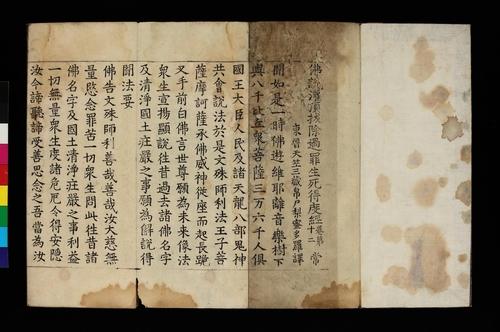 佛說灌頂拔除過罪生死得度經卷第十二 常
東晉天竺三藏帛尸梨蜜多羅譯
聞如是一時佛遊維耶離音樂樹下
與八千比丘衆菩薩三万六千人俱
國王大臣人民及諸天龍八部鬼神
共會說法於是文殊師利法王子菩
薩摩訶薩承佛威神從座而起長跪
叉手前白佛言世尊願為未來像法
衆生宣揚顯說往昔過去諸佛名字
及清淨國土莊嚴之事願為解說得
聞法要
佛告文殊師利善哉善哉汝大慈無
量愍念罪苦一切衆生問此往昔諸
佛名字及國土清淨莊嚴之事利益
一切無量衆生度諸危厄令得安隱
汝今諦聽諦受善思念之吾當為汝